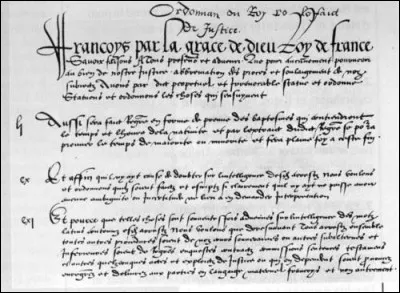 Ordonnan du Roy
de Justice.
Francoys par la grace de dieu Roy de france
Savoir faisons A tous presens et advenir Que pour aucunement pourveoir
au bien de nostre Justice abbreviation des proces et soulaigement de noz
subiectz Avons par edit perpetuel et irrevocable statué et ordonné
Statuons et ordonnons les choses qui sensuyvent
li Aussi sera faict Regre en forme de preuve des baptesmes qui contiendront
le temps et lheure de la nativite et par lextraict dudict Regre se pora
prouver le temps de maiorite ou minorite et fera plaine foy a ceste fin
cx Et affin quil ny ayt cause de doubter sur lintelligence desd arrestz Nous voulons
et ordonnons quilz soient faictz et escriptz si clerement quil ny ayt ne puisse avoir
aucune ambiguite ou incertitude ne lieu a en demander interpretacion
cxi Et pource que telles choses sont souventesfois advenues sur lintelligence des motz
latins contenuz esd arrestz Nous voulons que doresnavant Tous arrestz ensemble
toutes autres procedures soient de noz cours souveraines ou autres subalternes et
inferieures soient de Regres enquestes contractz commissions sentences testamens
et autres quelzconques actes et exploictz de Justice ou qui en dependent soient prononcez
enregrez et delivrez aux parties en langage maternel francoys et non autrement